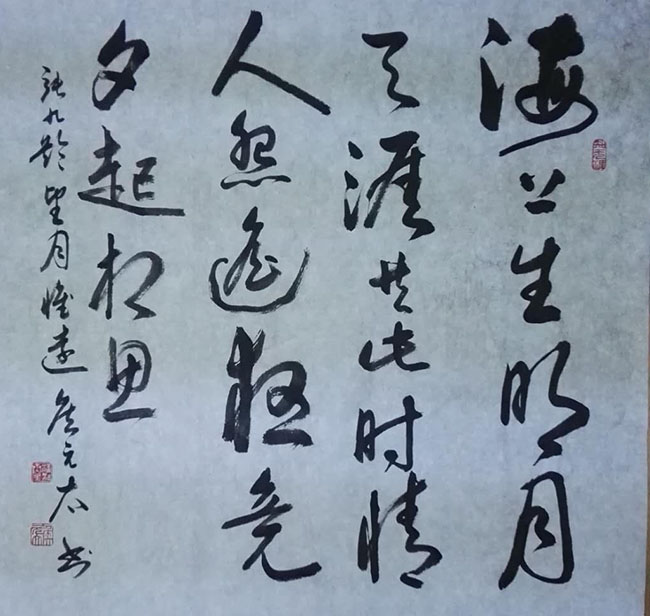 海上生明月
天涯共此时情
人怨遥夜竟
夕起相思
張九龄望月懷遠 书